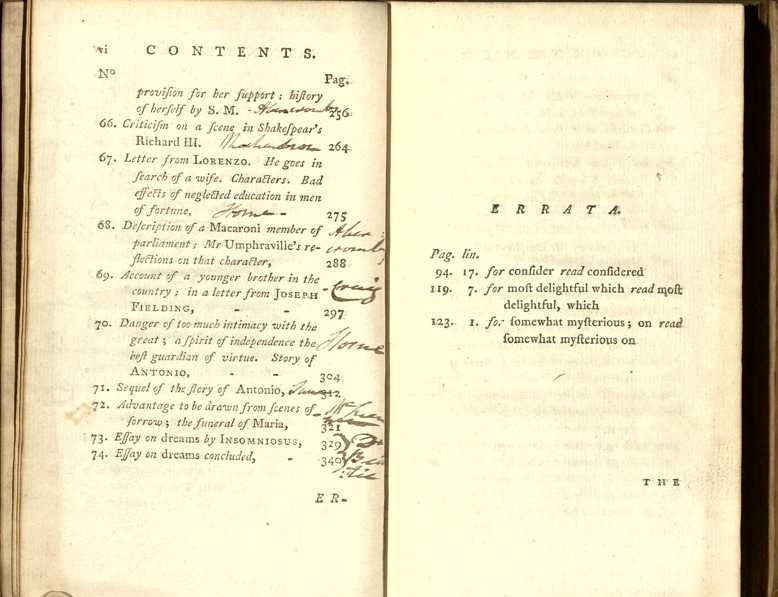 vi CONTENTS.
No Pag.
proviſion for her ſupport ; hiſtory
of herſelf by S. M. - Abercromby 256
66. Criticiſm on a ſcene in Shakeſpear's
Richard III. 264
67. Letter from LORENZO. He goes in
ſearch of a wife. Characters. Bad
effects of neglected education in men
of fortune, Home - 275
68. Deſcription of a Macaroni member of Aber
parliament ; Mr Umphraville's re- cromby
flections on that character, 288
69. Account of a younger brother in the
country ; in a letter from JOSEPH - Craig
FIELDING, - - 297
70. Danger of too much intimacy with the
great ; a ſpirit of independence the Home
beſt guardian of virtue. Story of
ANTONIO, - - 304
71. Sequel of the ſtory of Antonio, 312
72. Advantage to be drawn from ſcenes of
ſorrow ; the funeral of Maria, 321
73. Eſſay on dreams by INSOMNIOSUS, 329
74. Eſſay on dreams concluded, - 340
ER-
ERRATA.
Pag. lin.
94. 17. for conſider read conſidered
119. 7. for moſt delightful which read moſt
delightful, which
123. 1. for ſomewhat myſterious ; on read
ſomewhat myſterious on
THE